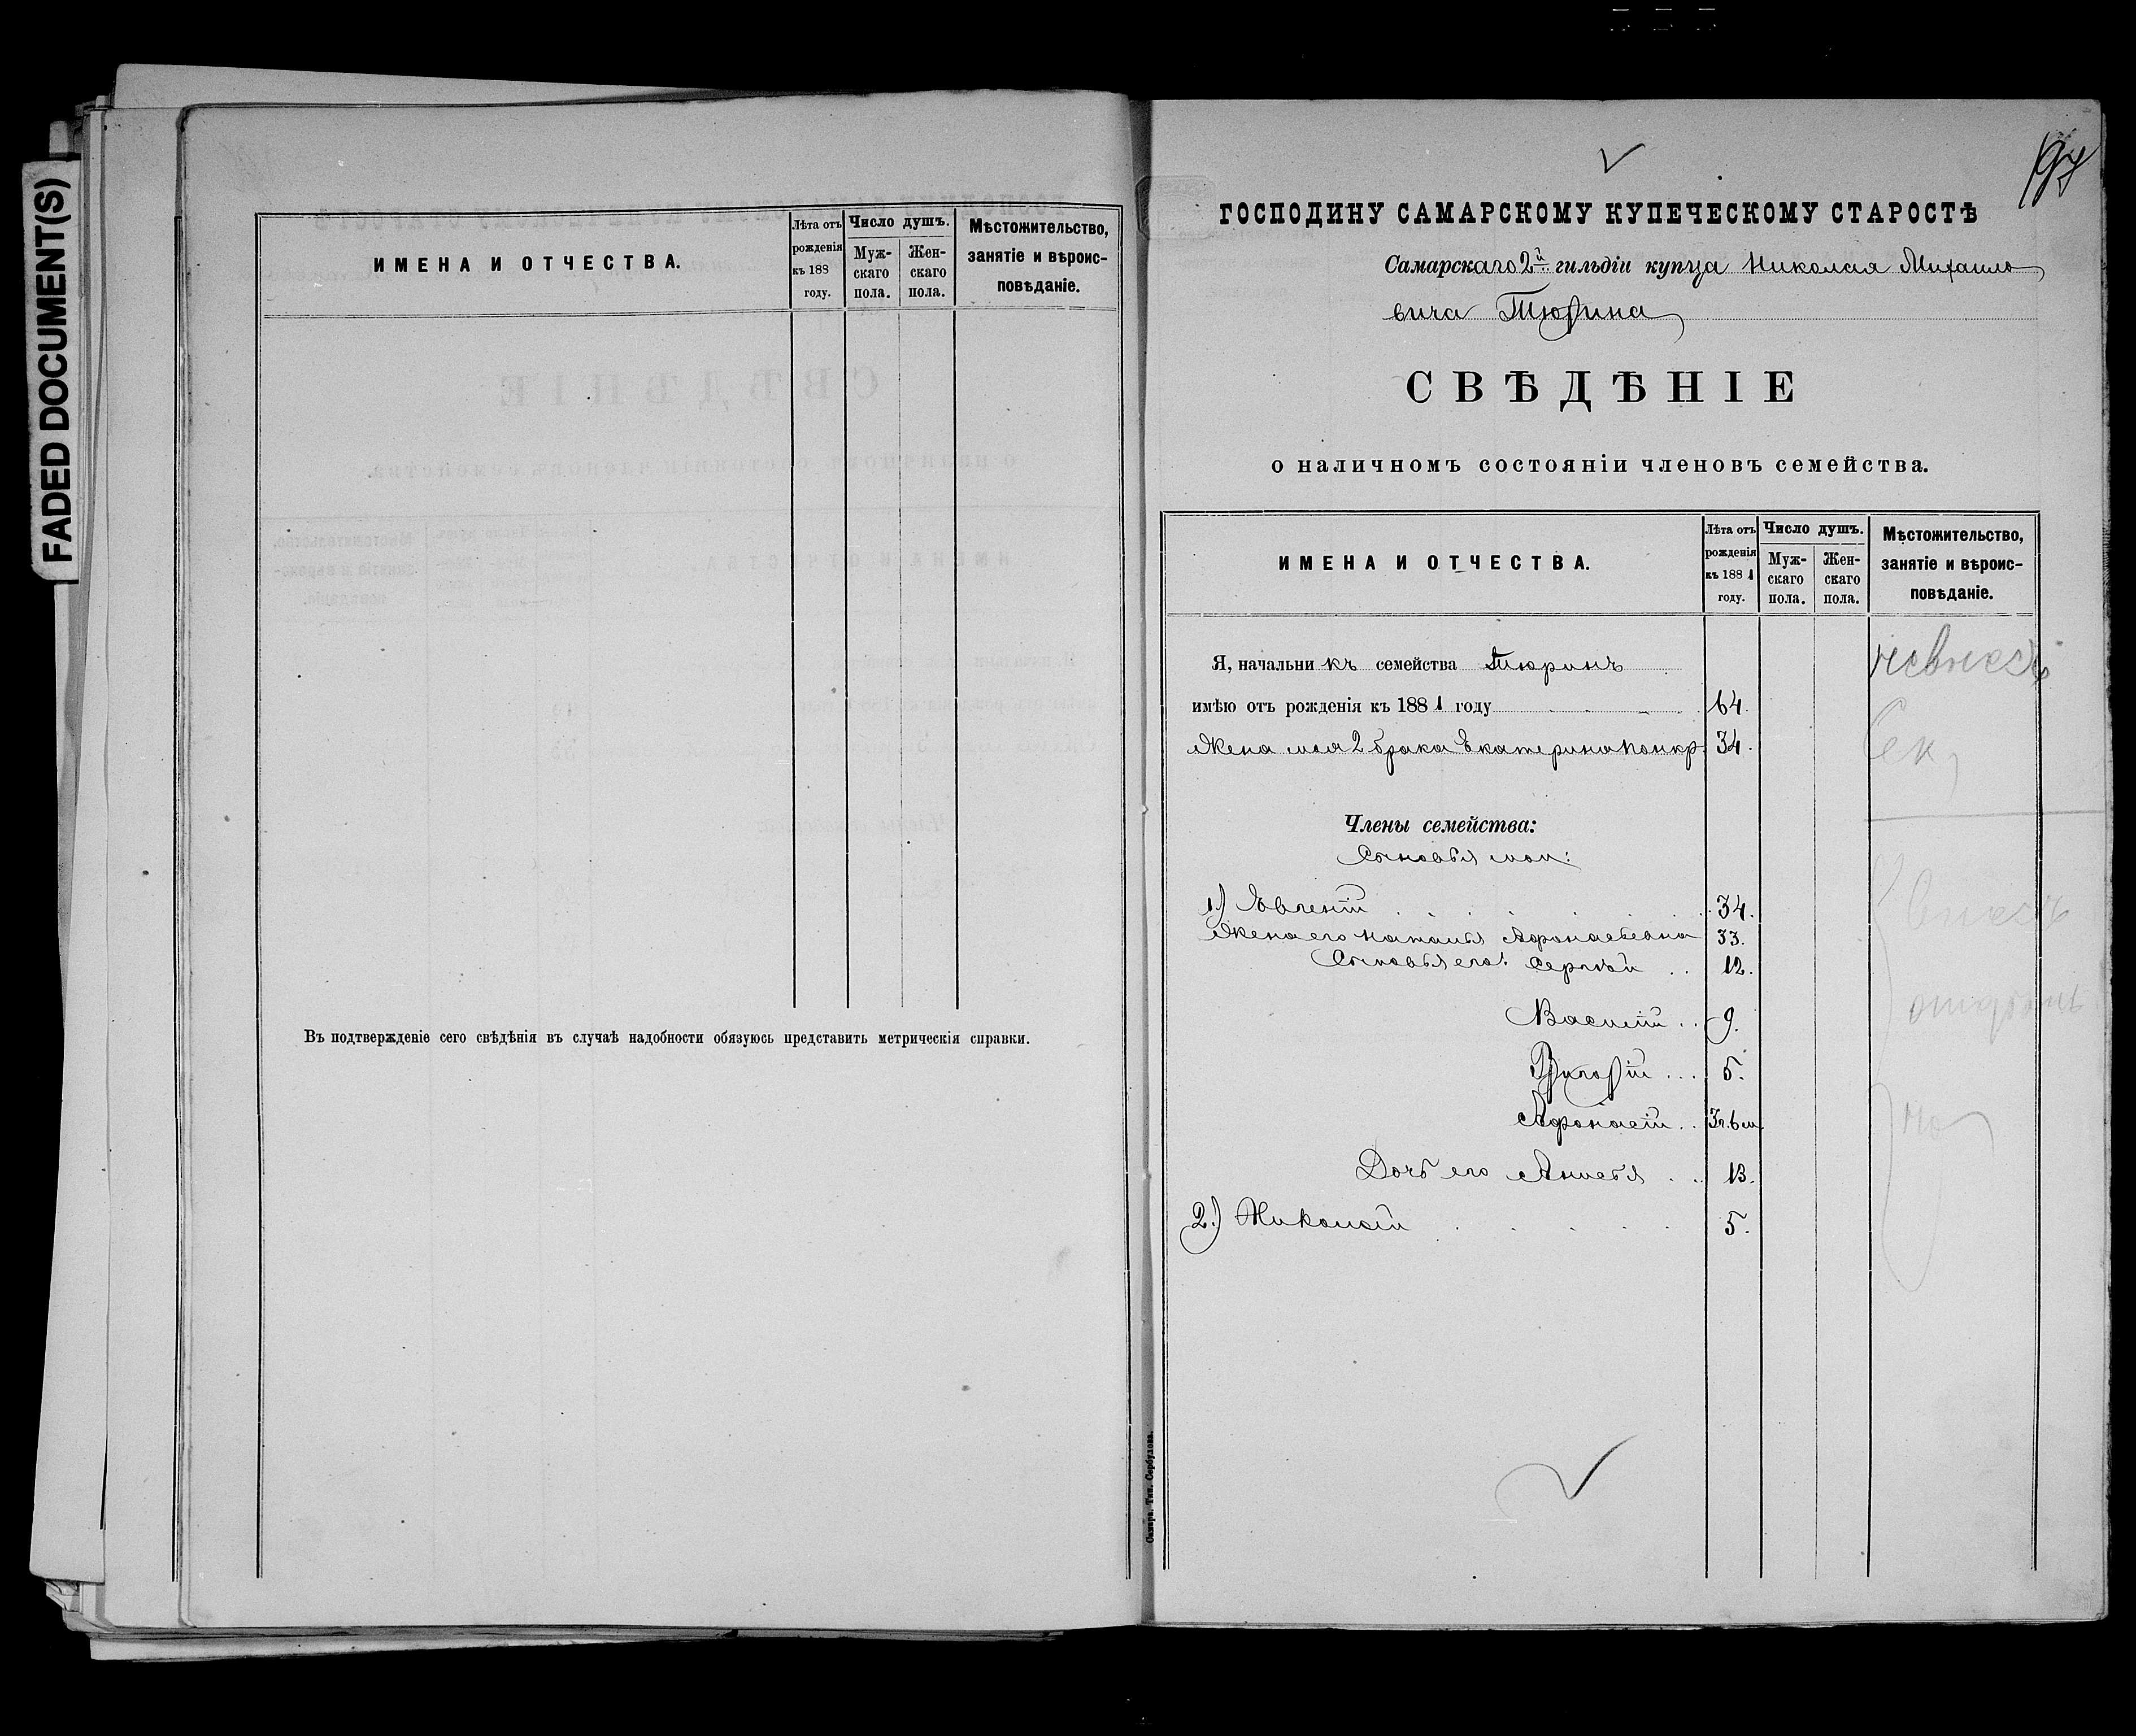 FADED DOCUMENT(S)
ИМЕНА И ОТЧЕСТВА.
Лѣта отъ рожденія къ 188 году.
Число душъ.
Мужскаго пола.
Женскаго пола.
Мѣстожительство, занятіе и вѣроисповѣданіе.
Въ подтвержденіе сего свѣдѣнія въ случаѣ надобности обязуюсь представить метрическія справки.
197
ГОСПОДИНУ САМАРСКОМУ КУПЕЧЕСКОМУ СТАРОСТѢ
Самарскаго 2й гильдіи купца Николая Михайло
вича Тюрина
СВѢДѢНІЕ
о наличномъ состояніи членовъ семейства.
ИМЕНА И ОТЧЕСТВА.
Лѣта отъ рожденія къ 1881 году.
Число душъ.
Мужскаго пола.
Женскаго пола.
Мѣстожительство, занятіе и вѣроисповѣданіе.
Я, начальникъ семейства Тюринъ
имѣю отъ рожденія къ 1881 году 64.
Жена моя 2 брака Екатерина Панкр. 34.
Члены семейства:
Сыновья мои:
1.) Евгеній 34.
Жена его Наталья Афонасьевна 33.
Сыновья его: Сергѣй 12.
Василій 9.
Григорій 5.
Афонасій 3г.6м.
Дочь его 13.
2.) Николай 5.
Самара. Тип. Сербулова.